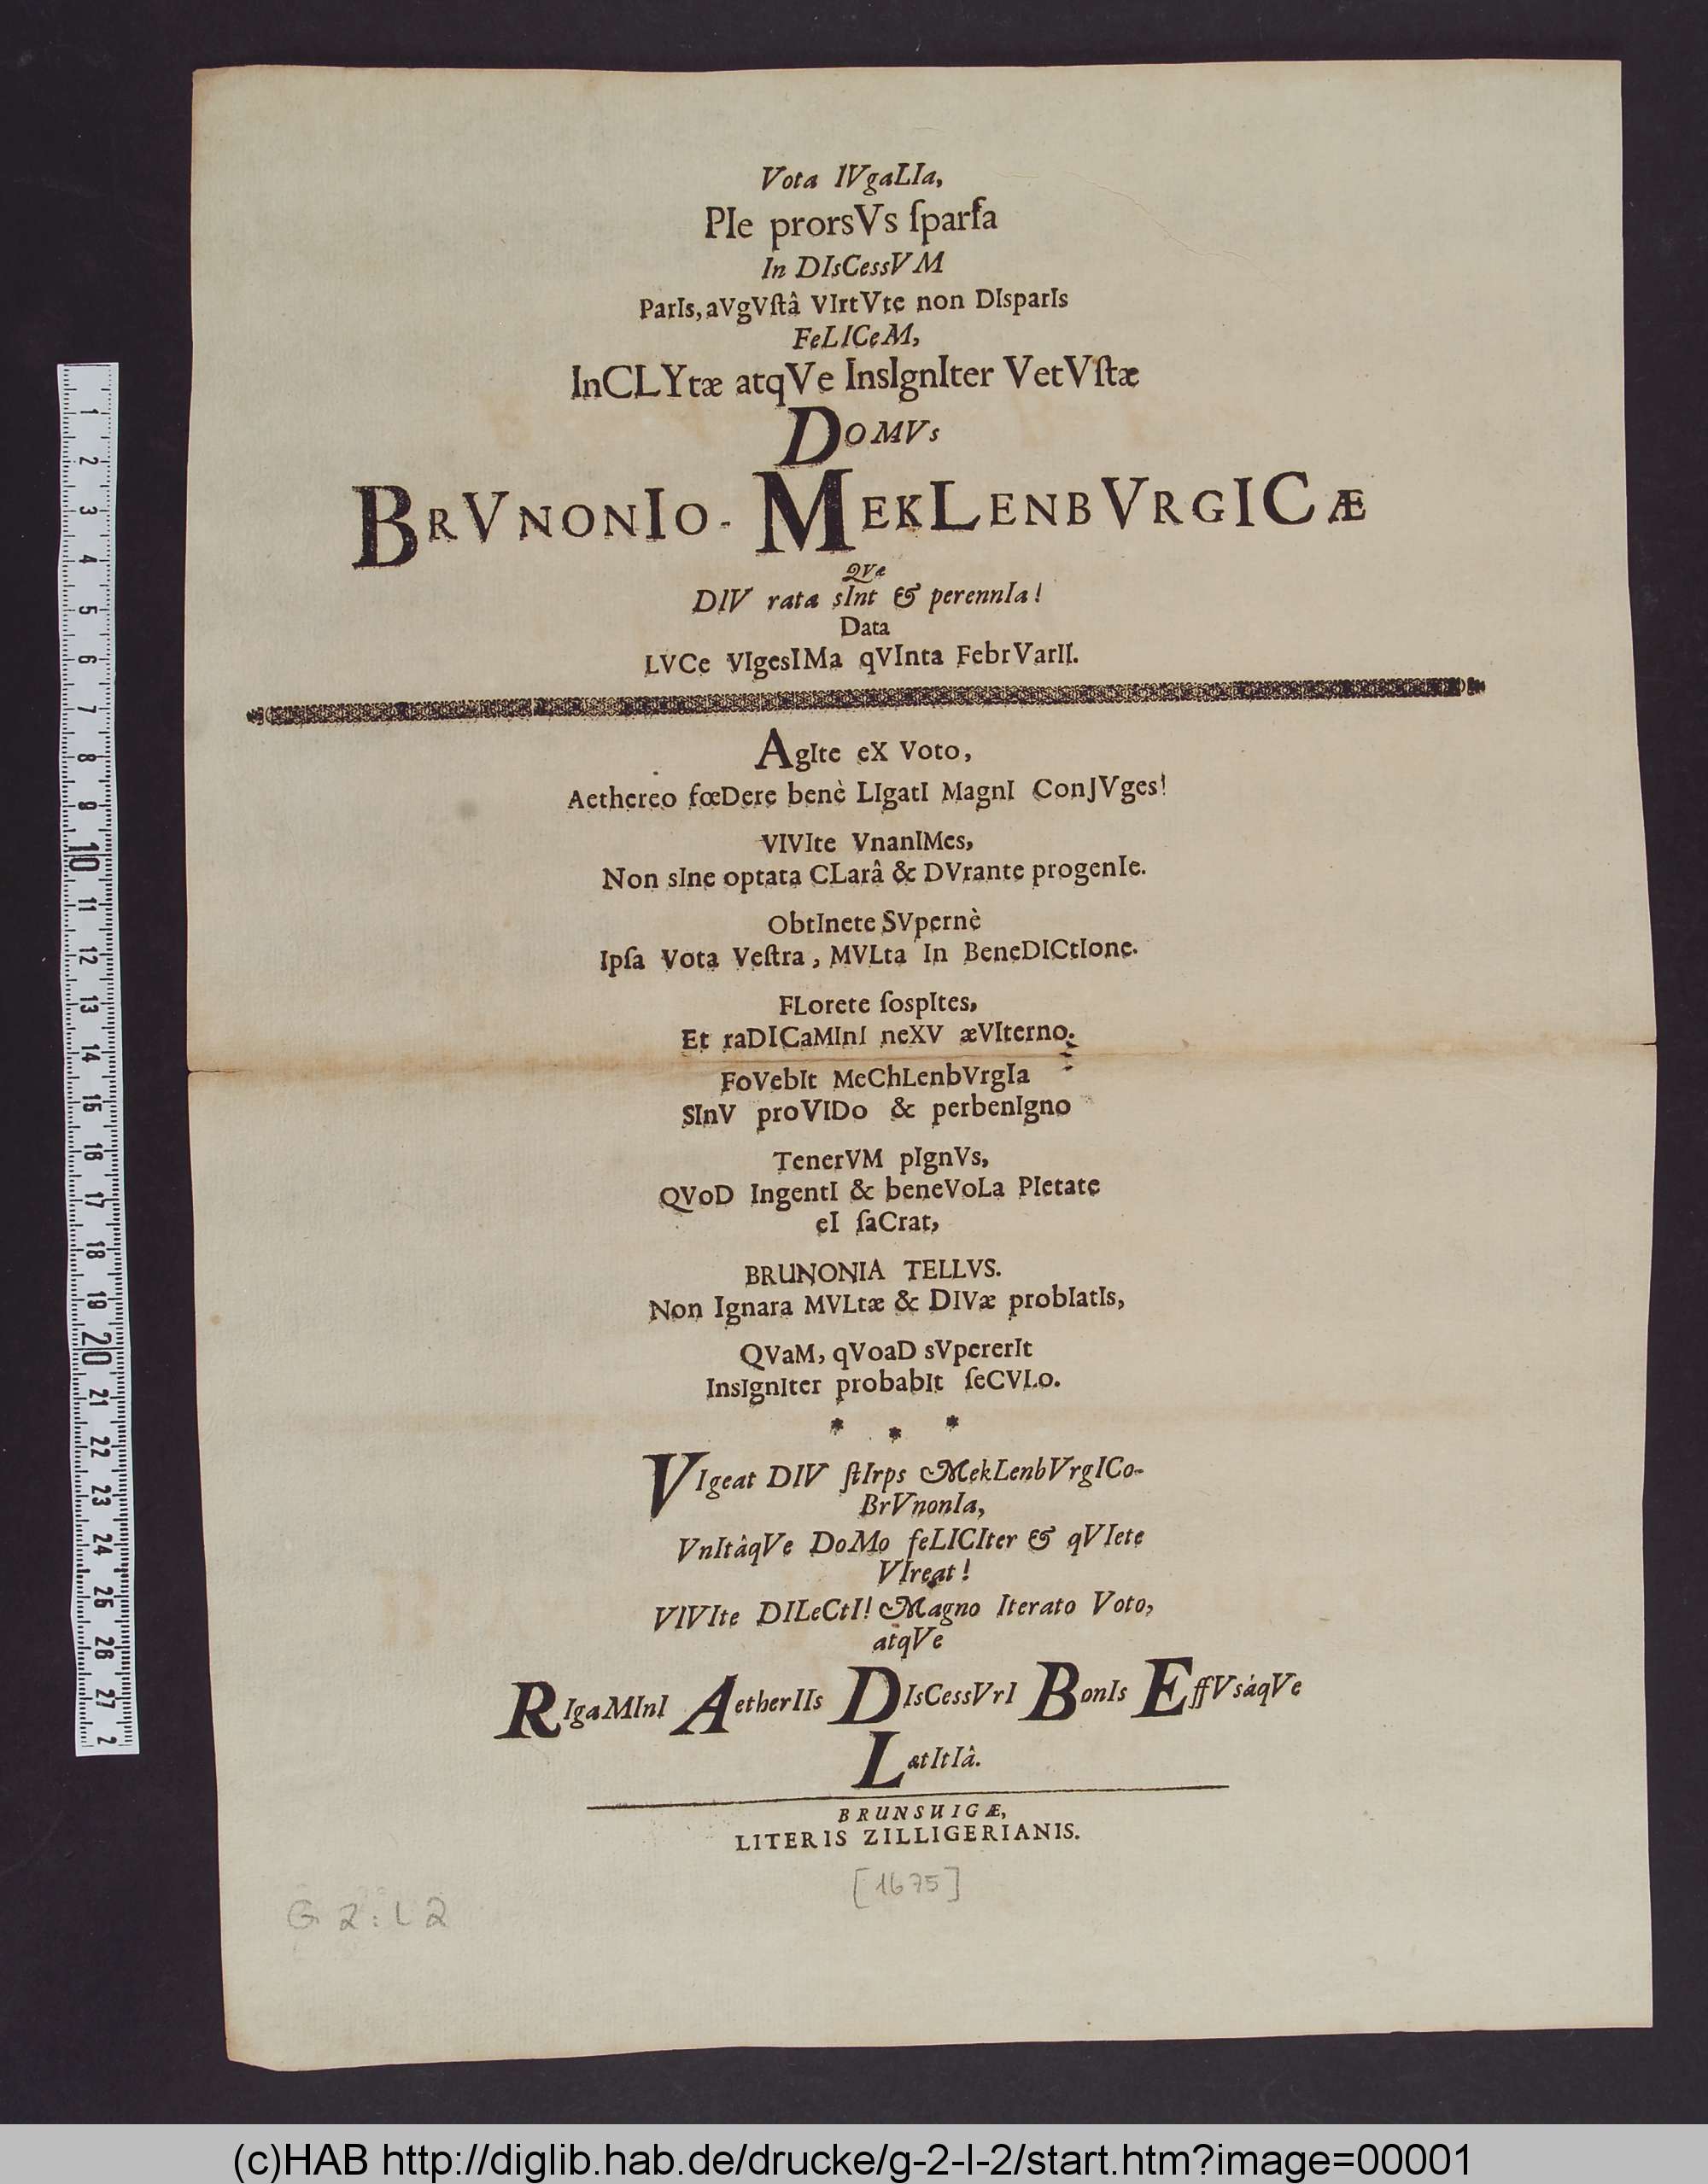 Vota IVgaLIa,
PIe prorsVs ſparſa
In DIsCessVM
ParIs, aVgVſtâ VIrtVte non DIsparIs
FeLICeM,
InCLYtæ atqVe InsIgnIter VetVſtæ
DOMVs
BRVNONIO-MEKLENBVRGICÆ
QVæ
DIV rata sInt & perennIa!
Data
LVCe VIgesIMa qVInta FebrVarII.
AgIte eX Voto,
Aethereo fœDere benè LIgatI MagnI ConJVges!
VIVIte VnanIMes,
Non sIne optata CLarâ & DVrante progenIe.
ObtInete SVpernè
Ipſa Vota Veſtra, MVLta In BeneDICtIone.
FLorete ſospItes,
Et raDICaMInI neXV æVIterno.
FoVebIt MeChLenbVrgIa
SInV proVIDo & perbenIgno
TenerVM pIgnVs,
QVoD IngentI & beneVoLa PIetate
eI ſaCrat,
BRUNONIA TELLVS.
Non Ignara MVLtæ & DIVæ probIatIs,
QVaM, qVoaD sVpererIt
InsIgnIter probabIt ſeCVLo.
* * *
VIgeat DIV ſtIrps MekLenbVrgICo-
BrVnonIa,
VnItâqVe DoMo feLICIter & qVIete
VIreat!
VIVIte DILeCtI! Magno Iterato Voto,
atqVe
RIgaMInI AetherIIs DIsCessVrI BonIs EffVsáqVe
LætItIâ.
BRUNSUIGÆ,
LITERIS ZILLIGERIANIS.
[1675]
G 2:L 2
1 2 3 4 5 6 7 8 9 10 11 12 13 14 15 16 17 18 19 20 21 22 23 24 25 26 27 2
(c)HAB http://diglib.hab.de/drucke/g-2-l-2/start.htm?image=00001